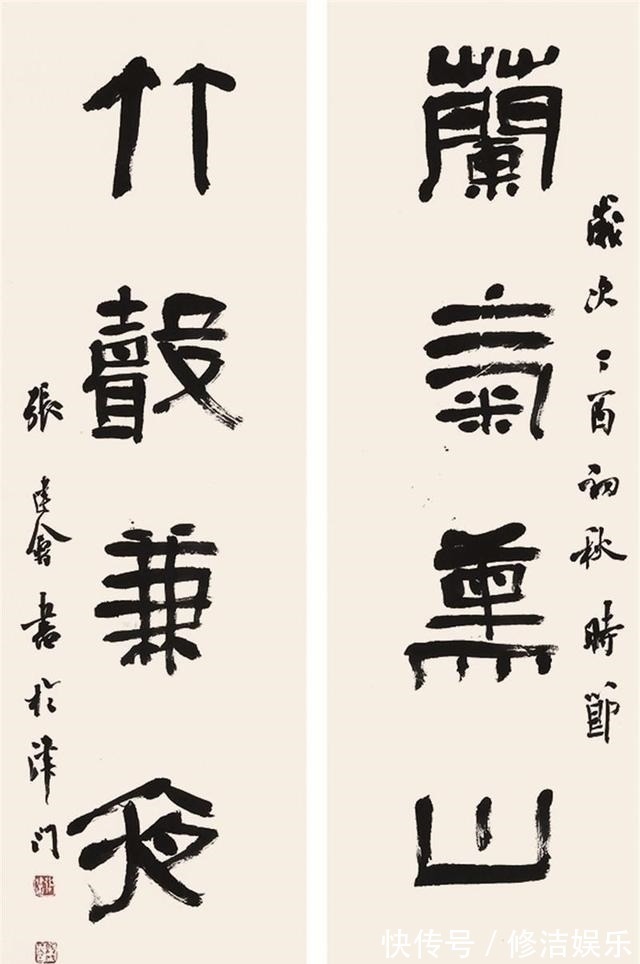 歲次丁酉初秋時節
蘭氣薰山
竹聲兼夜
張建會書於津門
快传号 / 修洁娱乐